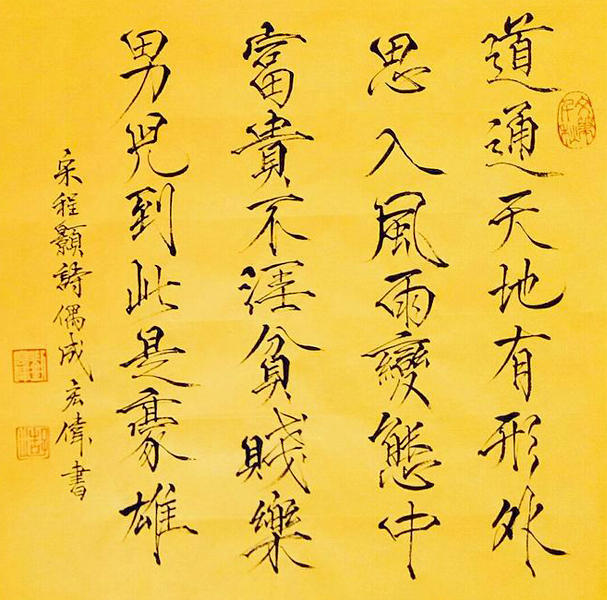 道通天地有形外
思入風雨變態中
富貴不淫貧賤樂
男兒到此是豪雄
宋程顥詩偶成宏偉書